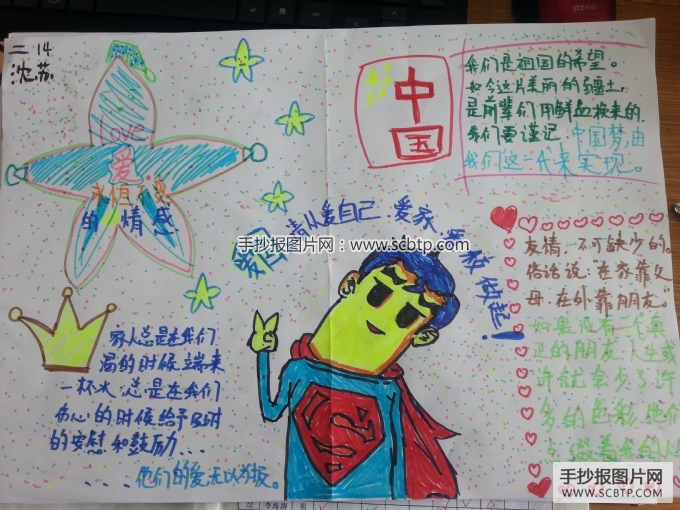 二14
沈苏
Love
爱
永恒不变
的情感
中
国
我们是祖国的希望。
如今这片美丽的疆土,
是前辈们用鲜血换来的.
我们要谨记 中国梦由
我们这一代来实现。
爱国请从爱自己.爱家.爱校做起!
手抄报图片网:www.scbtp.com
友情一不可缺少的。
俗话说:"在家靠父
母.在外靠朋友。"
如果没有一个真
正的朋友.人生或
许就会少了许
多的色彩.他们
点缀着我的人
家人总是在我们
渴的时候端来
一杯水.总是在我们
伤心的时候给予及时
的安慰和鼓励...
他们的爱.无以为报。
手抄报图片网
WWW.SCBTP.COM
李光涛